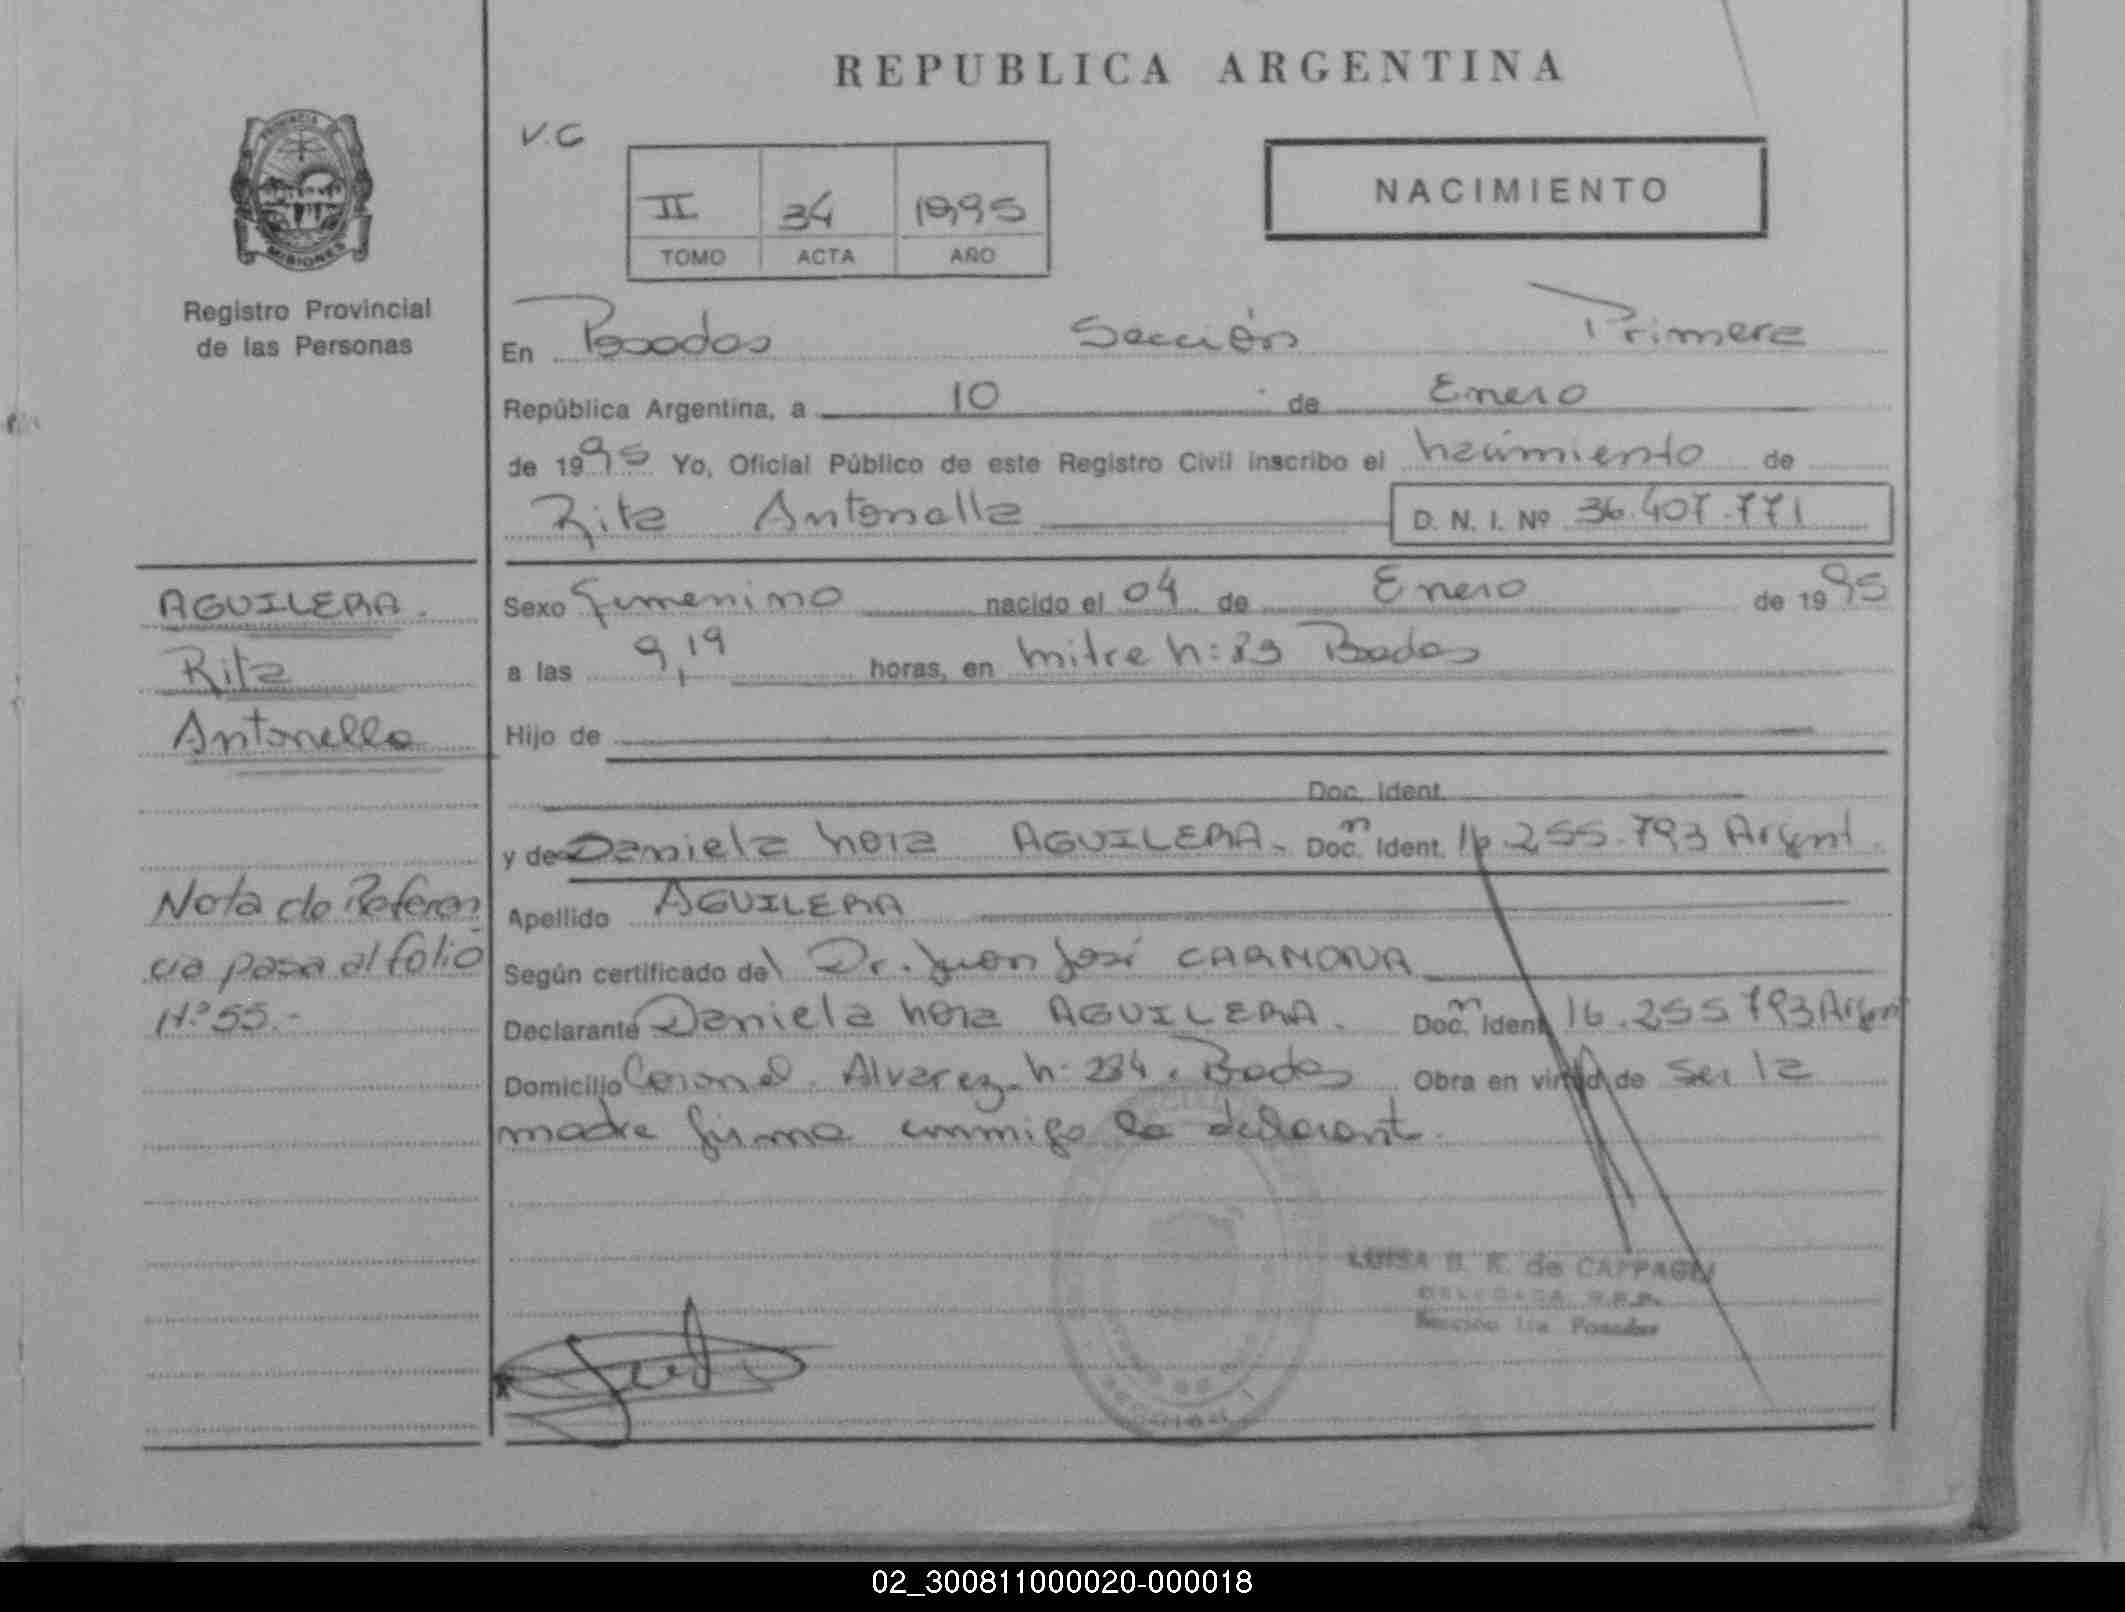 REPUBLICA ARGENTINA
PROVINCIA
MISIONES
Registro Provincial
de las Personas
V.C
NACIMIENTO
II 34 1995
TOMO ACTA AÑO
En Posadas Sección Primera
República Argentina, a 10 de Enero
de 1995 Yo, Oficial Público de este Registro Civil inscribo el nacimiento de
Rita Antonella D. N. I. Nº 36.407.771
AGUILERA.
Rita
Antonella
Sexo femenino nacido el 04 de Enero de 1995
a las 9,19 horas, en Mitre Nº Posadas
Hijo de
Doc. Ident.
y de Daniela AGUILERA. Docn. Ident. 16.255.793 Argent.
Apellido AGUILERA
Según certificado del Dr. Juan José CARMONA
Declarante Daniela AGUILERA. Docn. Ident. 16.255.793 Argent
Domicilio Coronel Alvarez Nº 234. Posadas Obra en virtud de ser la
madre firma conmigo la declarante.
Nota de Referen
cia pasa al folio
Nº 55.-
LUISA B. K. de CAPPAGLI
DELEGADA R.P.P.
Sección 1ra. Posadas
02_300811000020-000018